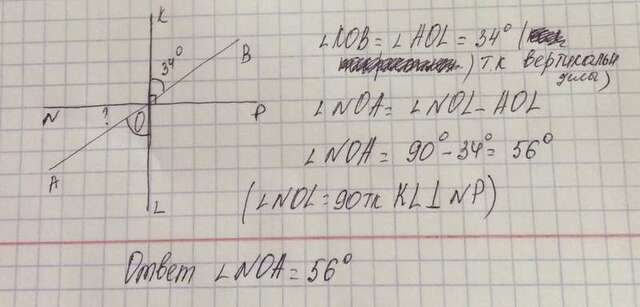 K
34°
B
N ? O P
A
L
∠KOB = ∠AOL = 34° (
) т.к вертикальн
углы)
∠NOA = ∠NOL - AOL
∠NOA = 90° - 34° = 56°
(∠NOL = 90 тк KL ⊥ NP)
Ответ ∠NOA = 56°